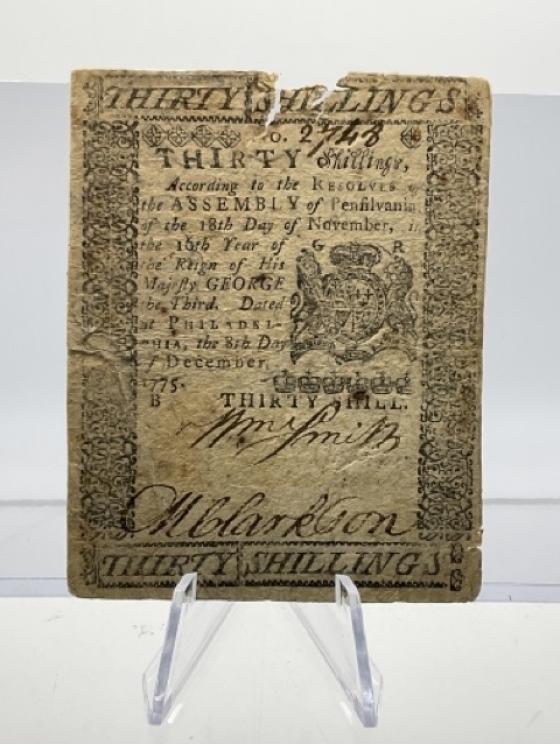 THIRTY SHILLINGS
O. 2748
THIRTY Shillings,
According to the RESOLVES of
the ASSEMBLY of Pensilvania
of the 18th Day of November, i
the 16th Year of
the Reign of His
Majesty GEORGE
the Third. Dated
at PHILADEL-
PHIA, the 8th Day
of December,
1775.
G R
B THIRTY SHILL.
Wm Smith
M Clarkson
THIRTY SHILLINGS